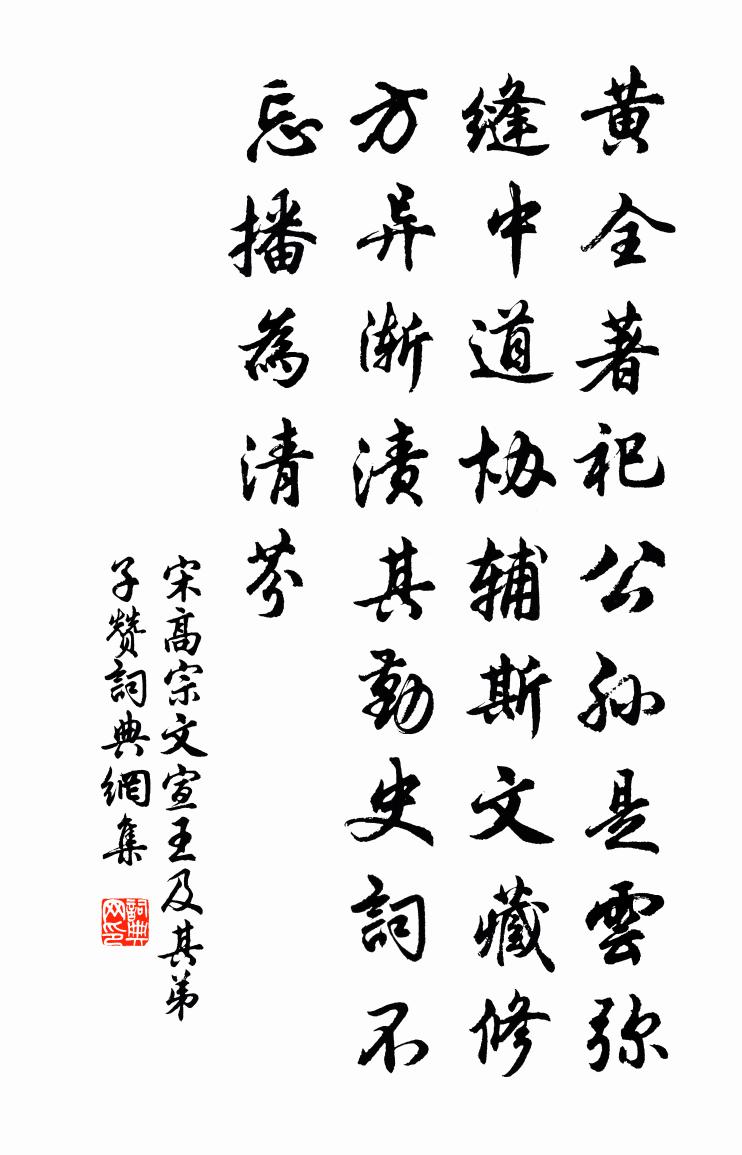 黄全著祀公孙是雲弥
缝中道协辅斯文藏修
方异渐渍其勤史詞不
忘播為清芬
宋高宗文宣王及其弟
子赞詞典網集
詞典网印